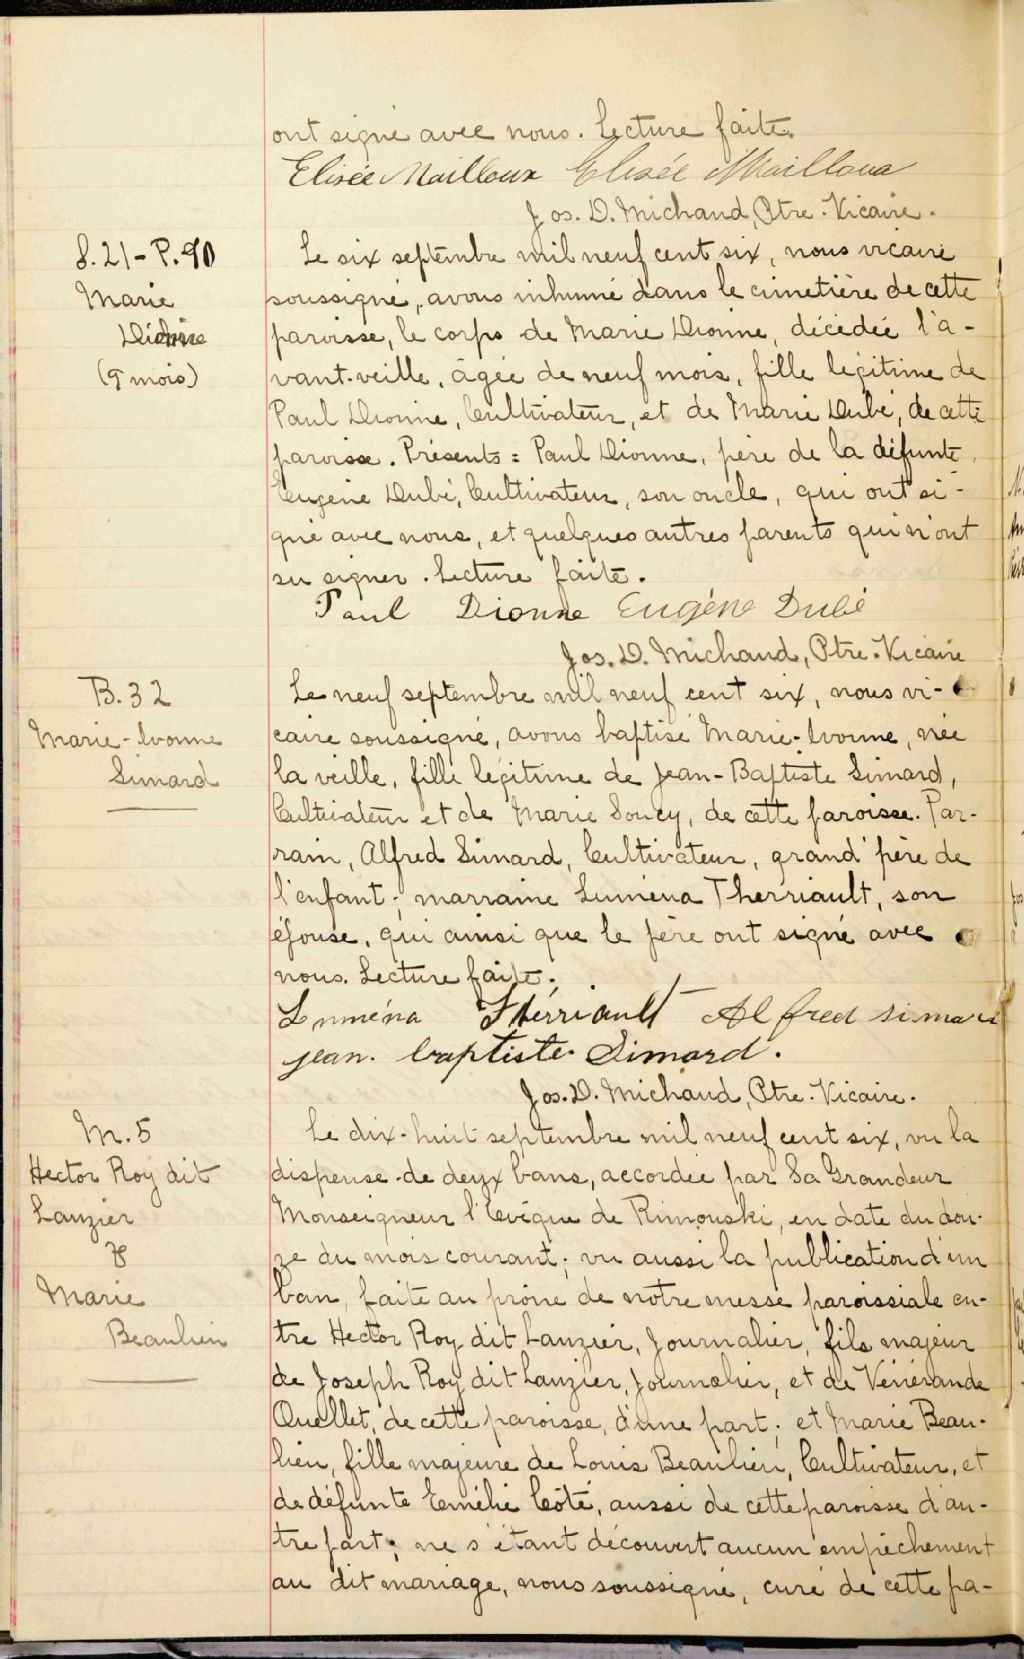 ont signé avec nous. Lecture faite.
Elisée Mailloux Elisée Mailloux
Jos. D. Michaud, Ptre. Vicaire.
S. 21 - P. 90
Marie
Dionne
(9 mois)
Le six septembre mil neuf cent six, nous vicaire
soussigné, avons inhumé dans le cimetière de cette
paroisse, le corps de Marie Dionne, décédée l'a-
vant-veille, âgée de neuf mois, fille légitime de
Paul Dionne, Cultivateur, et de Marie Dubé, de cette
paroisse. Présents : Paul Dionne, père de la défunte,
Eugène Dubé, Cultivateur, son oncle, qui ont si-
gné avec nous, et quelques autres parents qui n'ont
su signer. Lecture faite.
Paul Dionne Eugéne Dubé
Jos. D. Michaud, Ptre. Vicaire
B. 32
Marie-Ivonne
Simard
Le neuf septembre mil neuf cent six, nous vi-
caire soussigné, avons baptisé Marie-Ivonne, née
la veille, fille légitime de Jean-Baptiste Simard,
Cultivateur et de Marie Soucy, de cette paroisse. Par-
rain, Alfred Simard, Cultivateur, grand'père de
l'enfant ; marraine Luména Therriault, son
épouse, qui ainsi que le père ont signé avec
nous. Lecture faite.
Luména Thérriault Alfred simard
jean. baptiste Simard.
Jos. D. Michaud, Ptre. Vicaire.
M. 5
Hector Roy dit
Lauzier
&
Marie
Beaulieu
Le dix-huit septembre mil neuf cent six, vu la
dispense de deux bans, accordée par Sa Grandeur
Monseigneur l'Evêque de Rimouski, en date du dou-
ze du mois courant ; vu aussi la publication d'un
ban, faite au prône de notre messe paroissiale en-
tre Hector Roy dit Lauzier, Journalier, fils majeur
de Joseph Roy dit Lauzier, Journalier, et de Vénérande
Ouellet, de cette paroisse, d'une part ; et Marie Beau-
lieu, fille majeure de Louis Beaulieu, Cultivateur, et
de défunte Emélie Côté, aussi de cette paroisse d'au-
tre part ; ne s'étant découvert aucun empêchement
au dit mariage, nous soussigné, curé de cette pa-